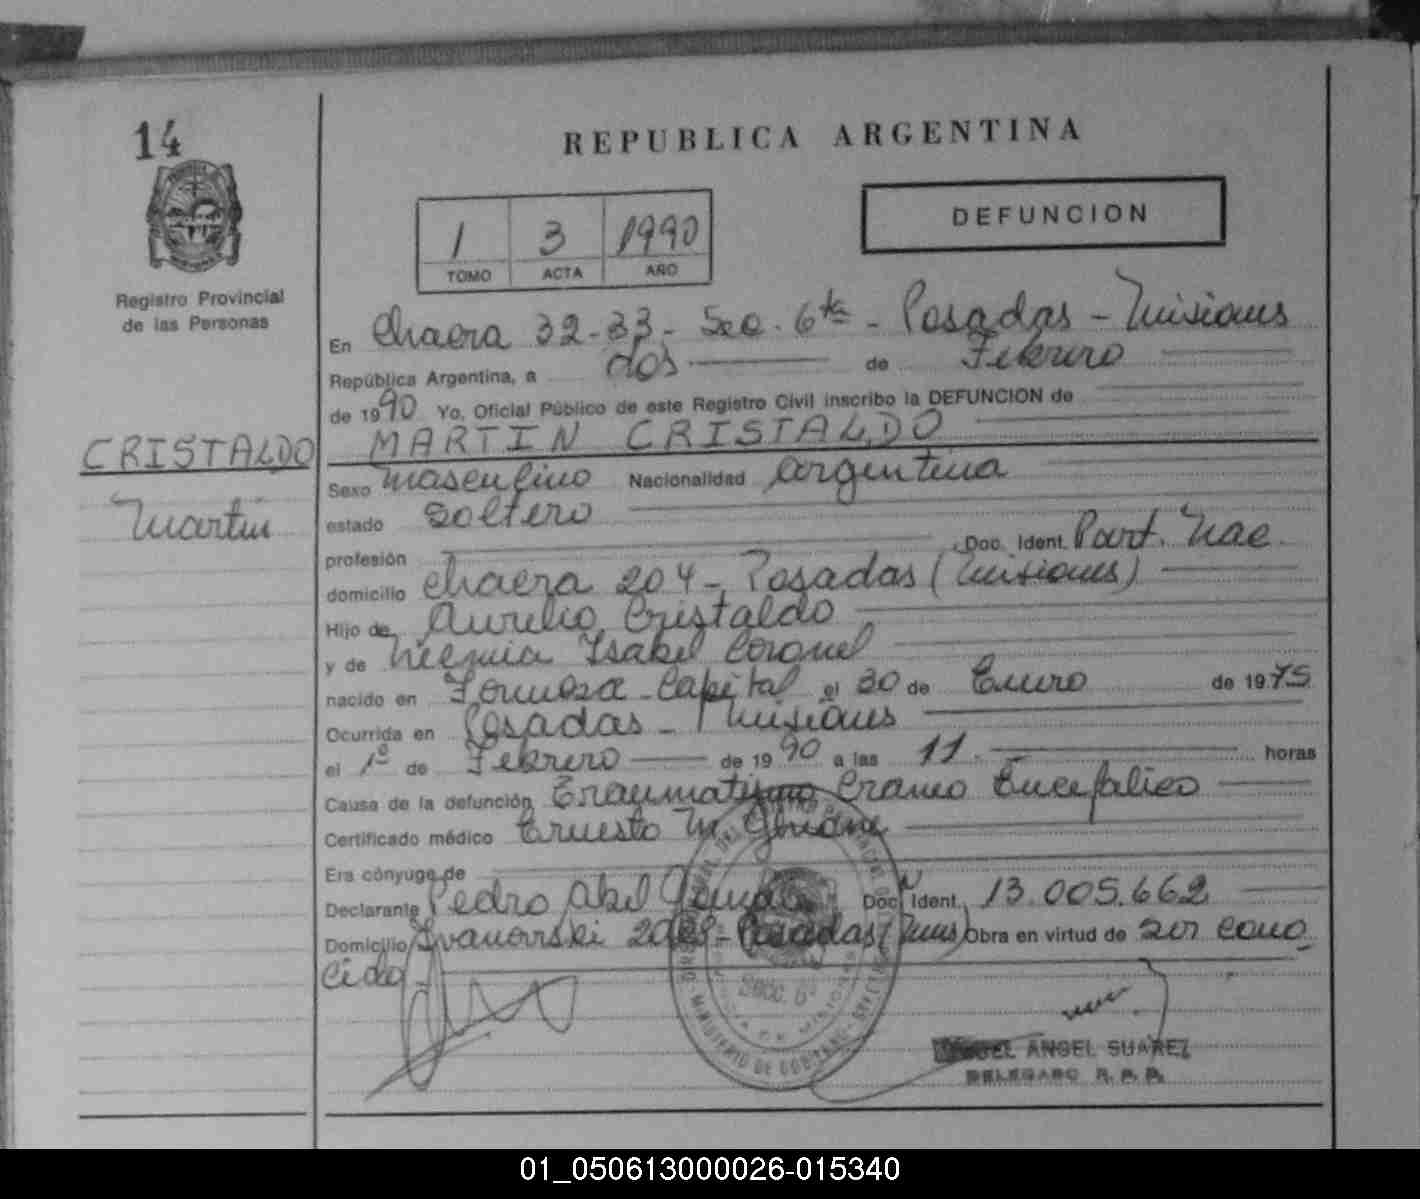 14
REPUBLICA ARGENTINA
1 3 1990
TOMO ACTA AÑO
DEFUNCION
Registro Provincial
de las Personas
En Chacra 32-33- Sec. 6ta - Posadas - Misiones
República Argentina, a dos de Febrero
de 1990 Yo, Oficial Público de este Registro Civil inscribo la DEFUNCION de
MARTIN CRISTALDO
CRISTALDO
Martin
Sexo Masculino Nacionalidad Argentina
estado Soltero
profesión Doc. Ident. Part. Nac.
domicilio Chacra 204 - Posadas (Misiones)
Hijo de Aurelio Cristaldo
y de Isabel Coronel
nacido en Formosa Capital el 30 de Enero de 1975
Ocurrida en Posadas - Misiones
el 1º de Febrero de 1990 a las 11 horas
Causa de la defunción Traumatismo Craneo Encefalico
Certificado médico Ernesto M.
Era cónyuge de
Declarante Pedro Abel Doc. Ident. N 13.005.662
Domicilio Posadas (Mnes) Obra en virtud de ser cono
cido
SECC. 6ª
MINISTERIO DE GOBIERNO
ANGEL SUAREZ
DELEGADO R. P. P.
01_050613000026-015340